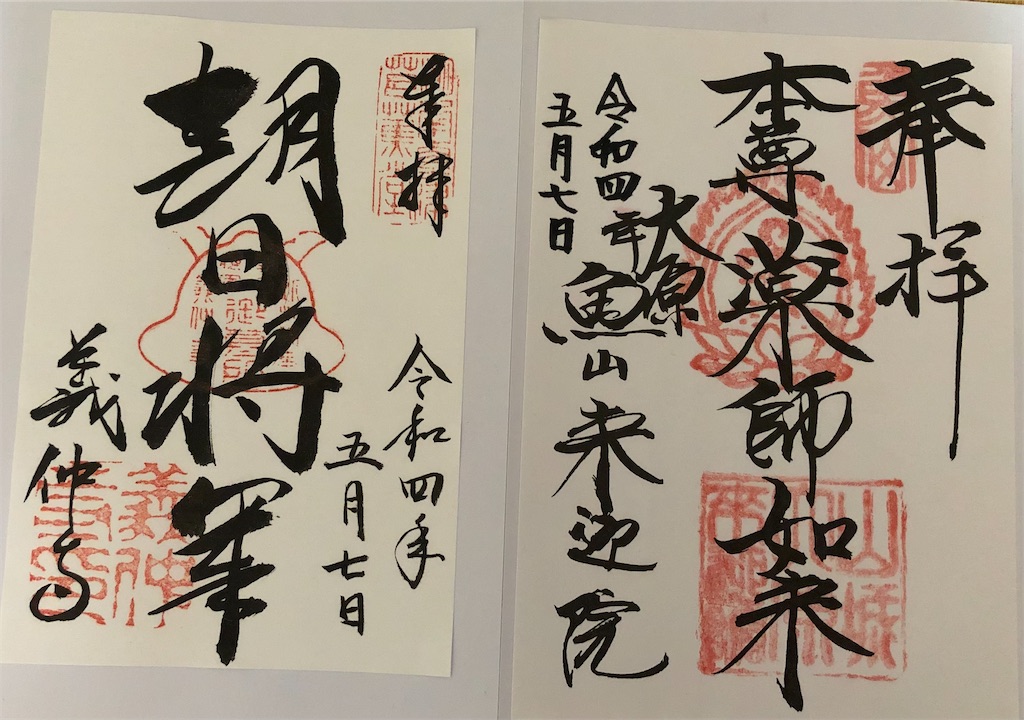 奉拝
令和四年
五月七日
朝日将軍
義仲寺
奉拝
本尊薬師如来
大原
魚山来迎院
令和四年
五月七日